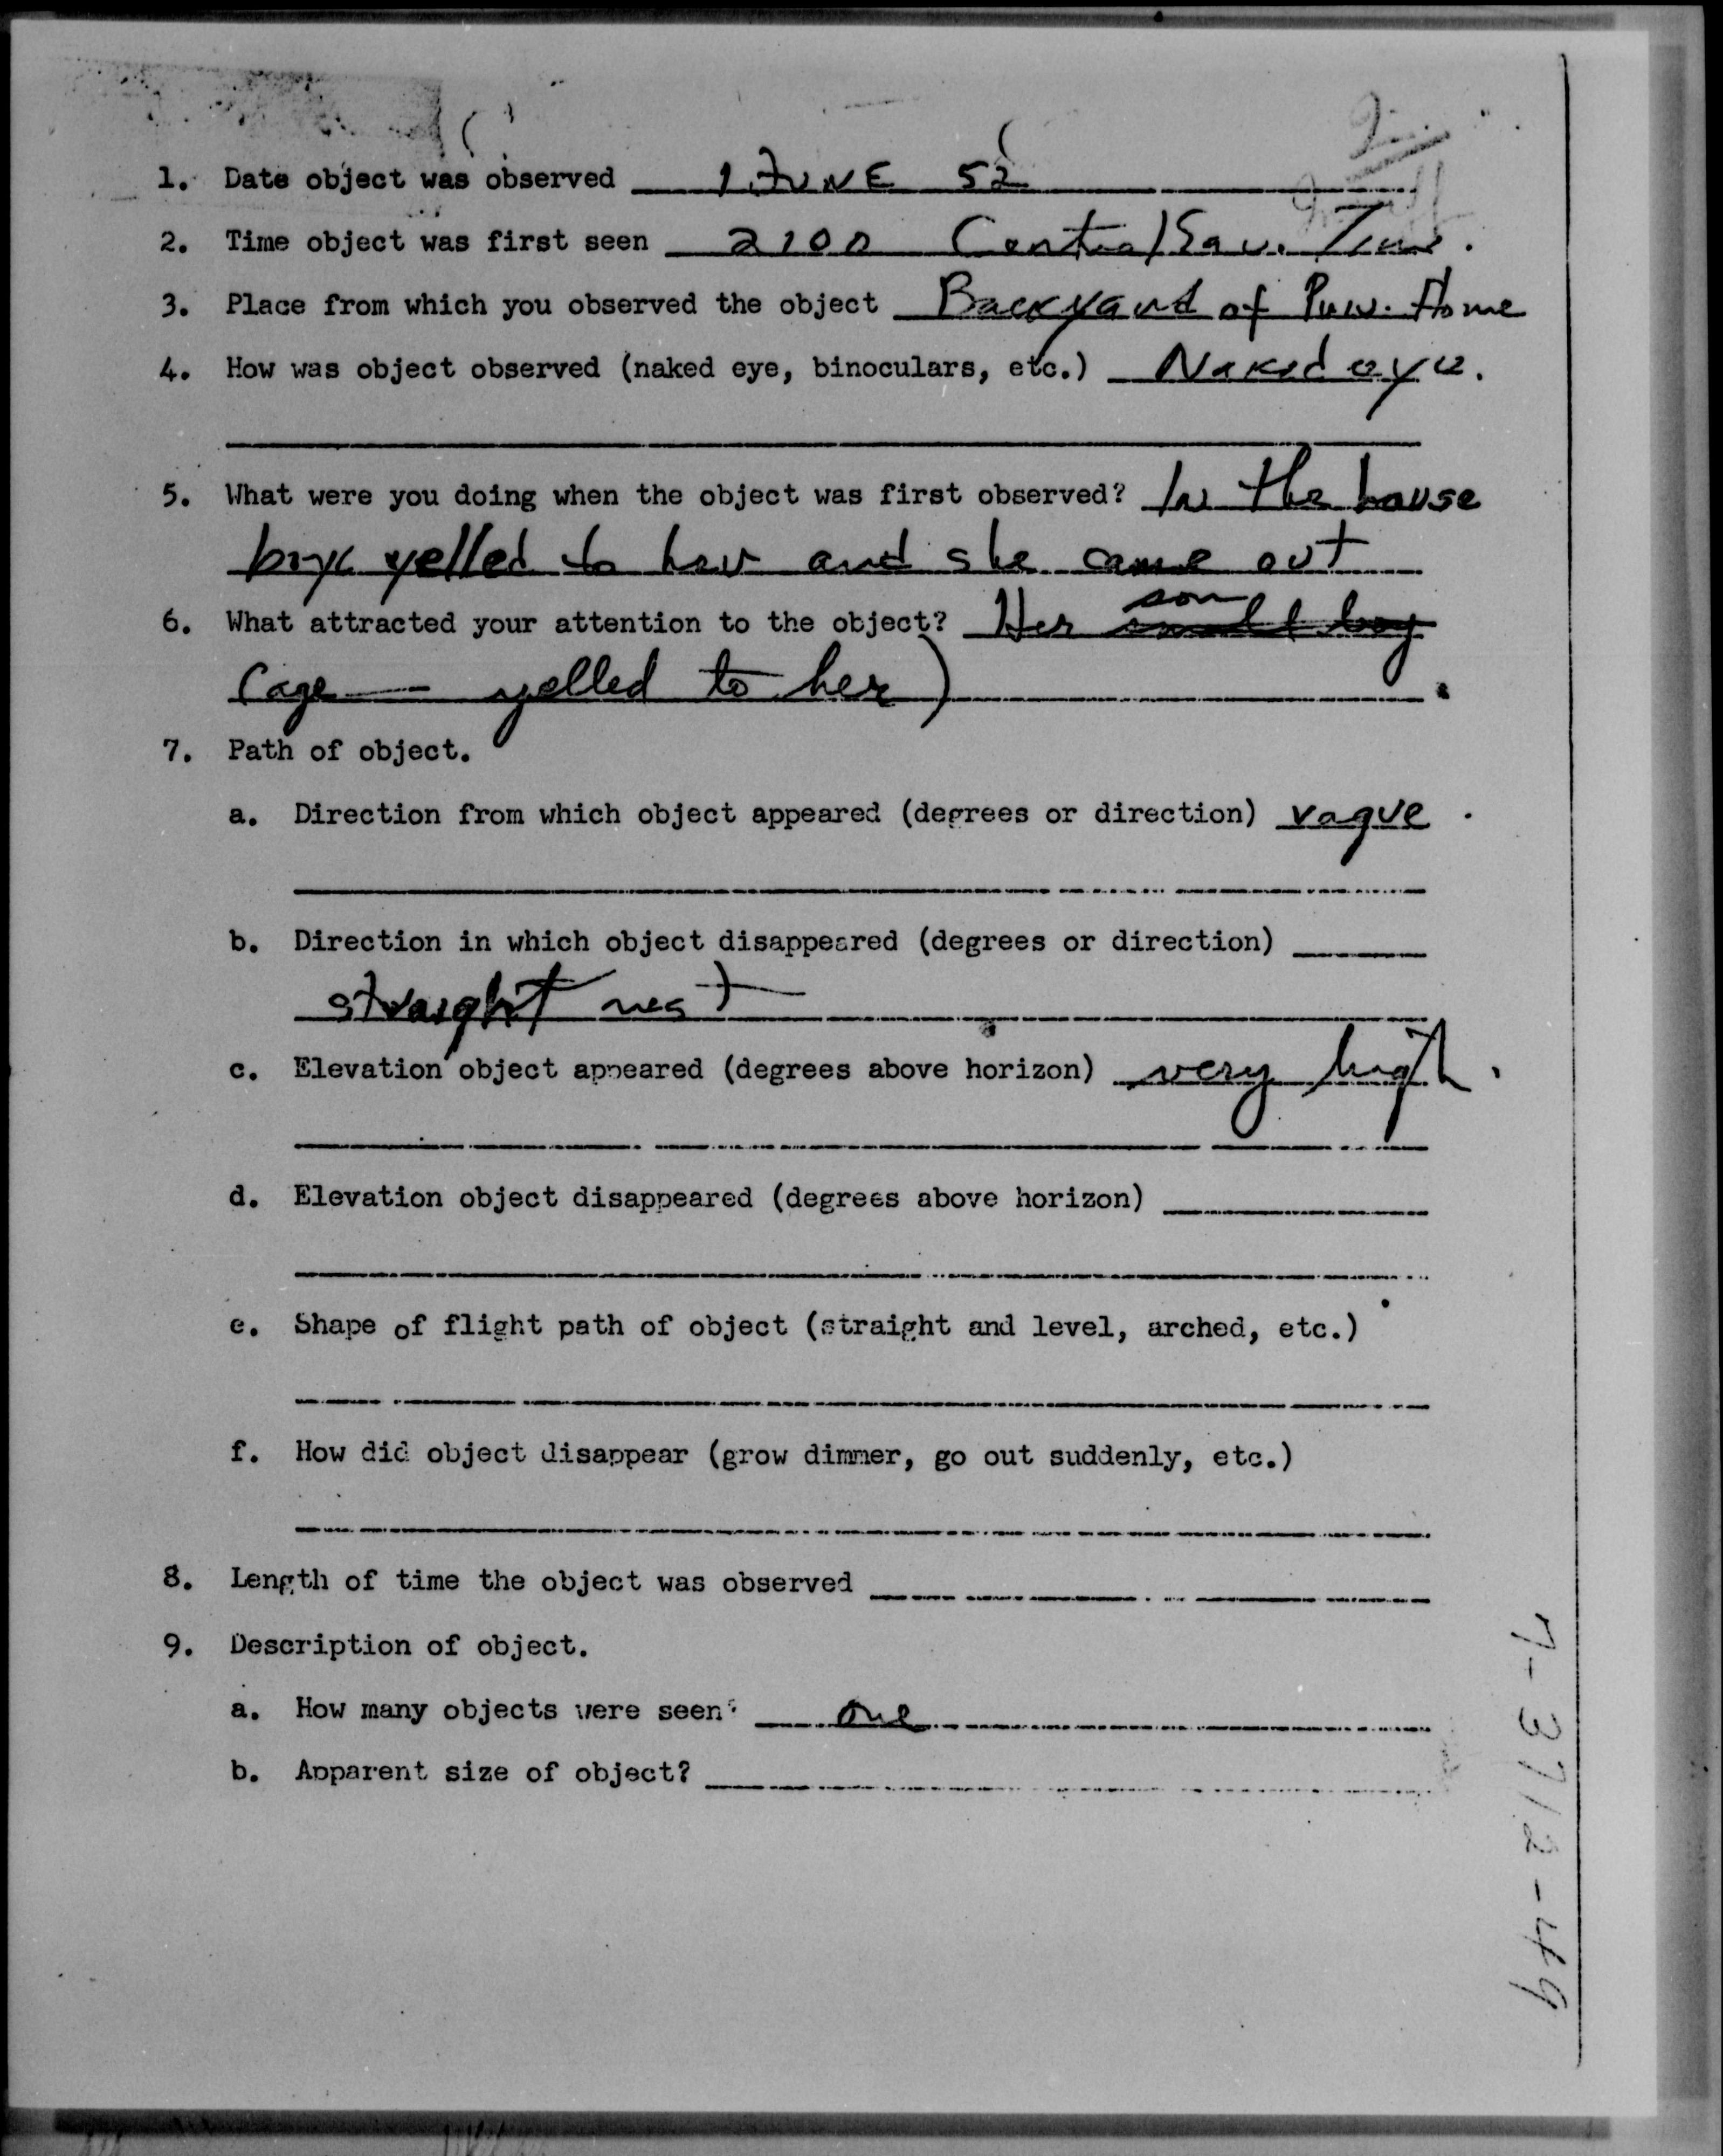 1. Date object was observed 1 JUNE 52
2. Time object was first seen 2100 Central Sav. Time.
3. Place from which you observed the object Backyard of Home
4. How was object observed (naked eye, binoculars, etc.) Naked eye.
5. What were you doing when the object was first observed? In the house
boys yelled to her and she came out
6. What attracted your attention to the object? Her son small boy
(age — yelled to her)
7. Path of object.
a. Direction from which object appeared (degrees or direction) vague
b. Direction in which object disappeared (degrees or direction)
straight west
c. Elevation object appeared (degrees above horizon) very high.
d. Elevation object disappeared (degrees above horizon)
e. Shape of flight path of object (straight and level, arched, etc.)
f. How did object disappear (grow dimmer, go out suddenly, etc.)
8. Length of time the object was observed
9. Description of object.
a. How many objects were seen? one
b. Apparent size of object?
7-3712-49